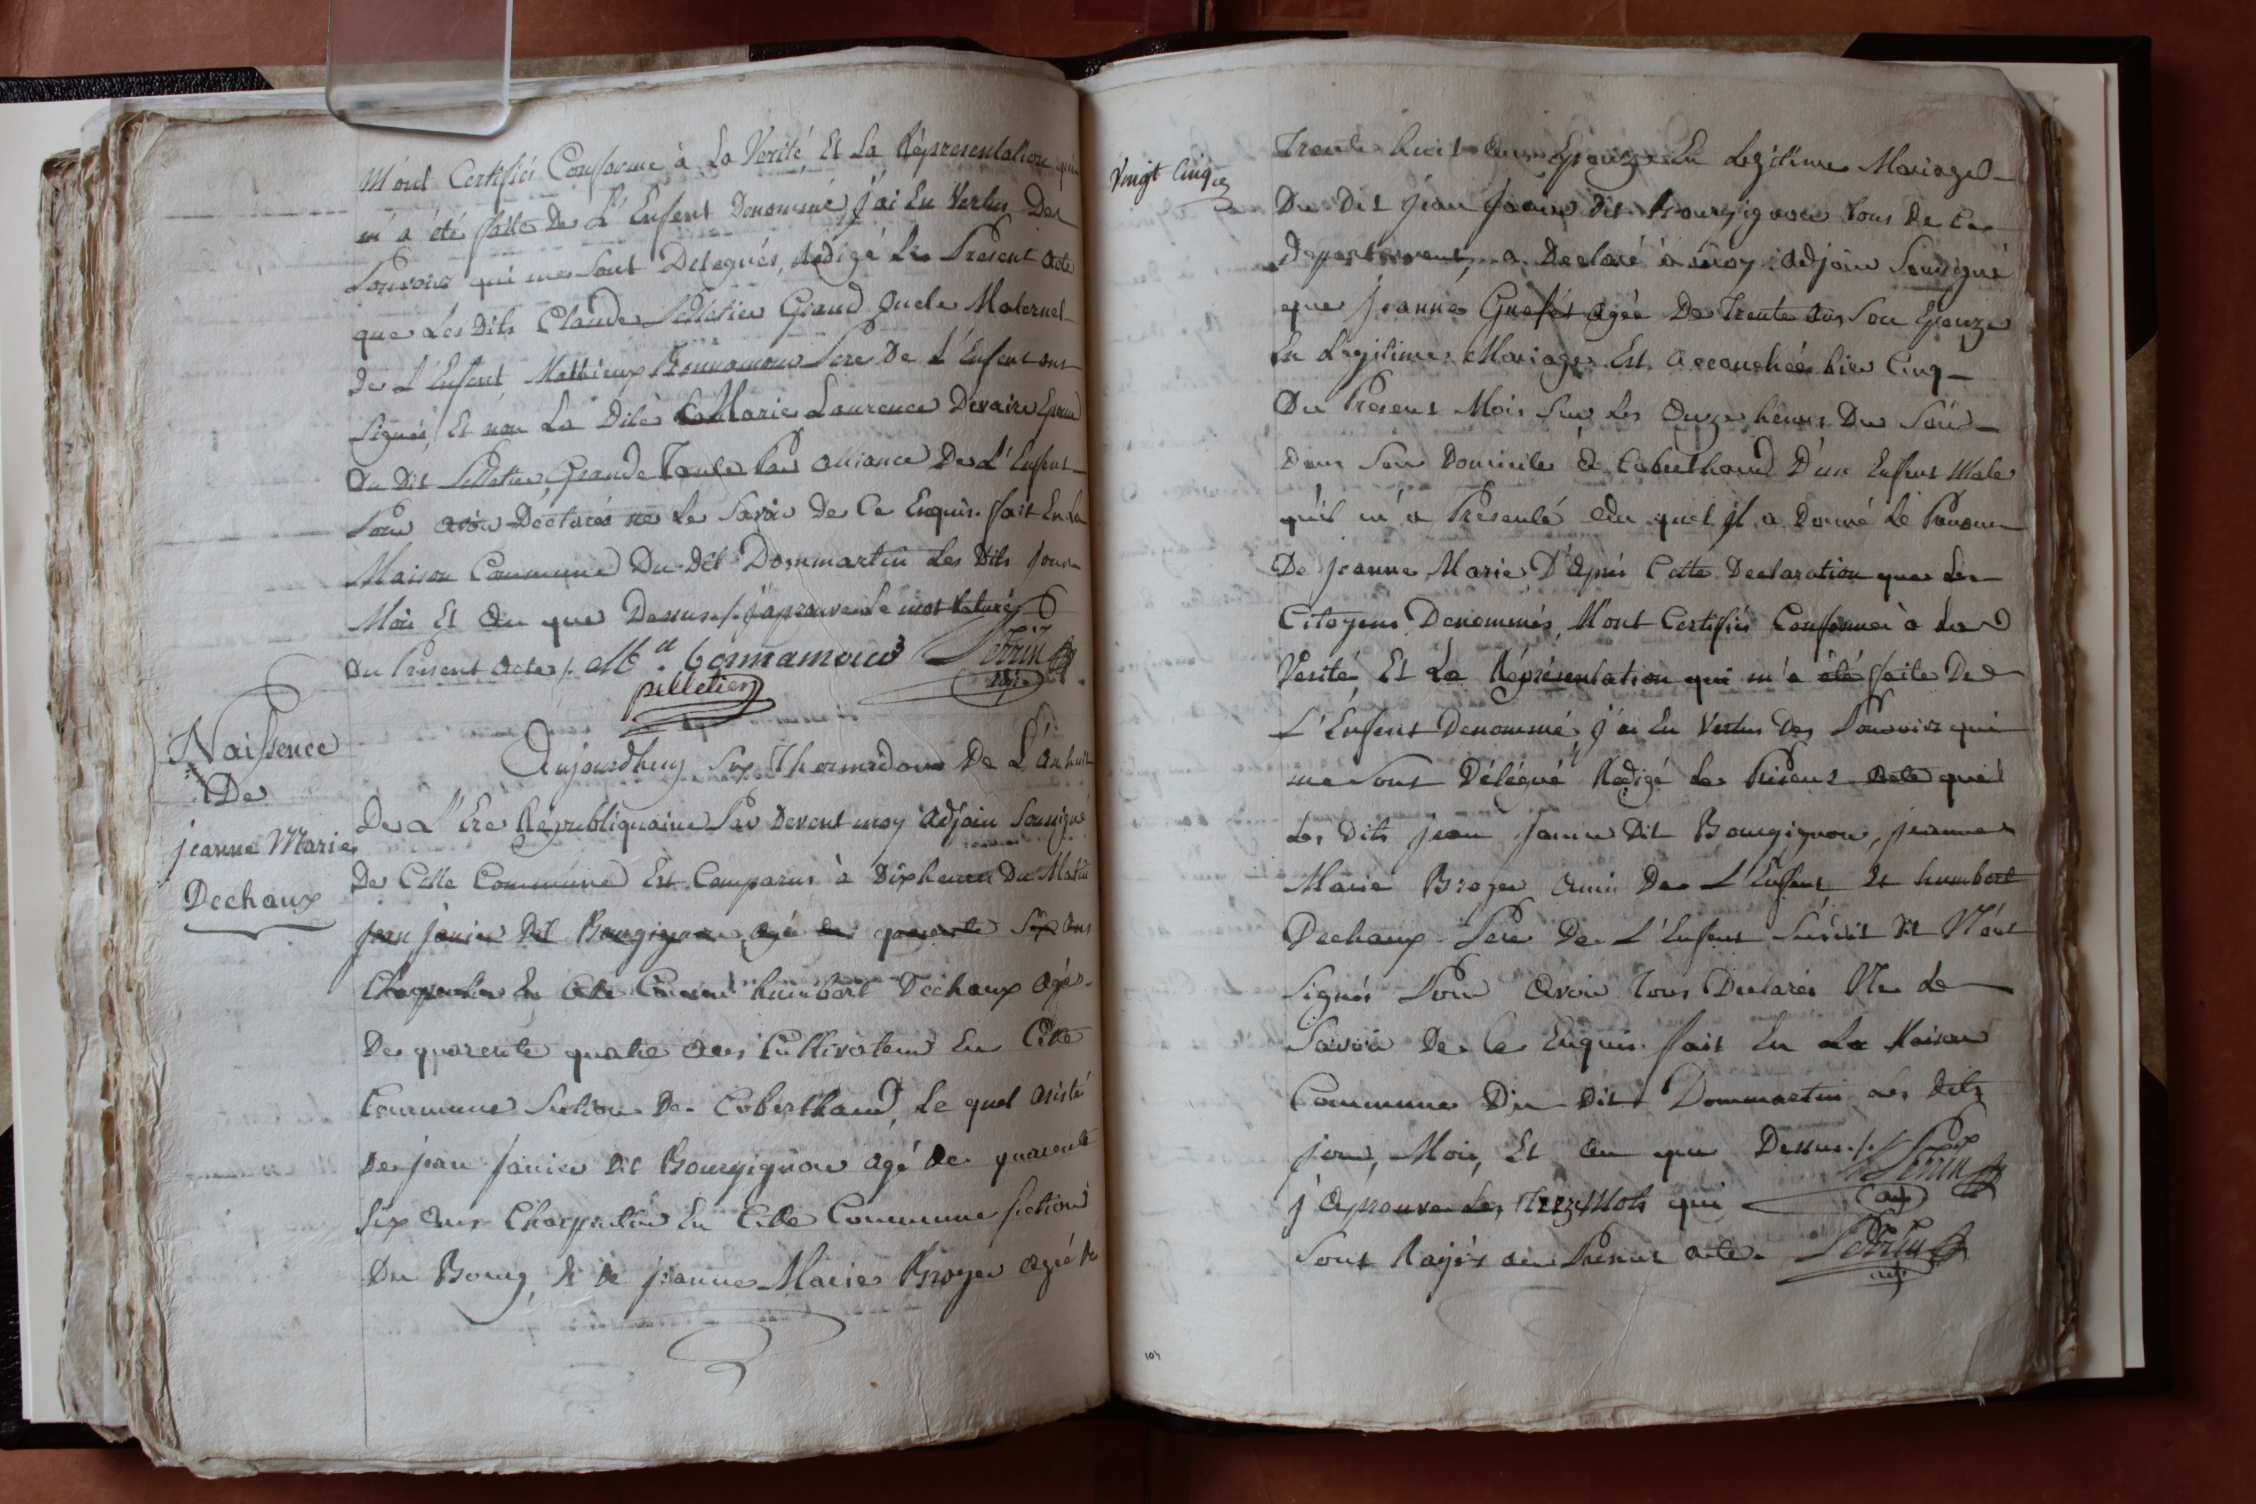 M'ont Certifiés Conforme à La Verité Et La Répresentation qui
m'a été faitte De L'Enfent Denommé, j'ai En Vertus Des
Pouvoirs qui me Sont Delegués, Rédigé Le Present acte
que Les Dits Claude Pelletier Grand Oncle Maternel
De L'Enfent, Matthieux Bonnamour Pere De L'Enfent ont
Signés, Et non La Dite Marie Laurence Devaire Epouse
Du Dit Pelletier, Grande Tante Par alliance De L'Enfent
Pour avoir Declarés ne Le Savoir De Ce Enquis. fait En La
Maison Commune Du Dit Dommartin Les Dits jour
Mois Et An que Dessus ./. j'aprouve Le mot Raturé
Du Present Acte ./. Mt. bonnamour Perrin
pelletier adj.
Naissence
De
jeanne Marie
Dechaux
Aujourdhuy Six Thermidore De L'an huit
De L'Ere Republiquaine Par Devent moy adjoin Soussigné
De Cette Commune Est Comparus à Dix heures Du Matin
jean janier Dit Bourgignon agé de quarente Six ans
Charpentier En Cette Commune humbert Dechaux agé
De quarente quatre ans Cultivateur En Cette
Commune Section De Coberthoud, Le quel asisté
De jean janier Dit Bourgignon agé de quarente
Six ans Charpentier En Cette Commune Section
Du Bourg, Et de jeanne Marie Broyer agée de
Vingt Cinq
Trente huit ans Epouze En Legitime Mariage
Du Dit jean janier Dit Bourgignon tous De Ce
Departement, a Declaré à moy adjoin Soussigné
que jeanne agée De Trente ans Son Epouze
En Légitime Mariage Est accouchée hier Cinq
Du Present Mois Sur Les Onze heures Du Soir
Dans Son Domicile à Coberthoud D'un Enfent Male
qu'il m'a Presenté Au quel il a Donné Le Prenom
De jeanne Marie, D'après Cette Declaration que Les
Citoyens Denommés, M'ont Certifiés Conforme à La
Verité Et La Répresentation qui m'a été faite De
L'Enfent Denommé, j'ai En Vertus Des Pouvoirs qui
me Sont Délégué Rédigé Le Present Acte que
Les Dits jean janier Dit Bourgignon, jeanne
Marie Broyer Amie De L'Enfent, Et humbert
Dechaux Pere De L'Enfent Susdit Dit N'ont
Signés Pour Avoir Tous Declarés Ne Le
Savoir De Ce Enquis. fait En La Maison
Commune Du Dit Dommartin Les Dits
jour, Mois, Et An que Dessus ./. Perrin
j'aprouve Les Treize Mots qui adj
Sont Rayés au Present acte. Perrin
adj.
107